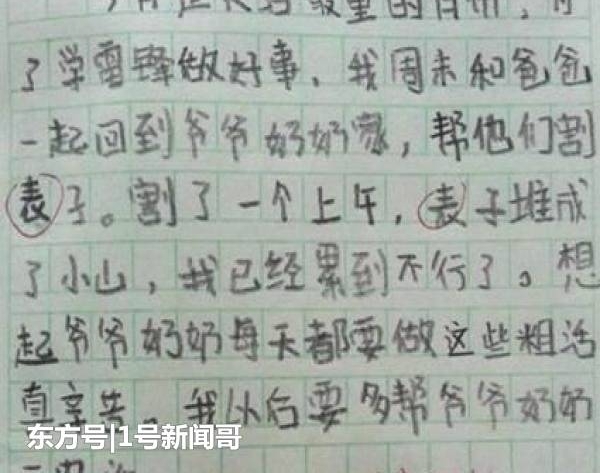 数里的
了学雷锋做好事，我周末和爸爸
一起回到爷爷奶奶家，帮他们割
表子。割了一个上午，表子堆成
了小山，我已经累到不行了。想
起爷爷奶奶每天都要做这些粗活
真辛苦。我以后要多帮爷爷奶奶
东方号|1号新闻哥